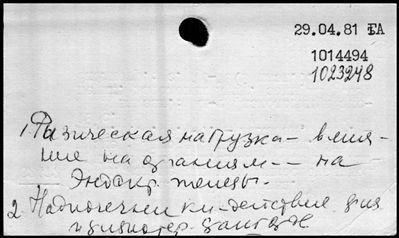 29.04.81 БА
1014494
1023248
1. Физическая нагрузка – влия-
ние на организм – – на
Эндокр. железы.
2. Надпочечники – действие физ